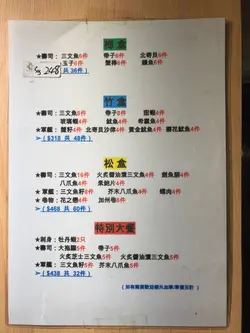 梅盒
★壽司：三文魚6件 帶子6件 北寄貝6件
玉子6件 蟹棒6件 鰻魚6件
$248 （共 36件）
竹盒
★壽司：三文魚8件 帶子5件 甜蝦4件
玻璃蝦4件 魷魚4件 希靈魚4件
★軍艦：蟹籽4件 北寄貝沙律4件 黃金魷魚4件 櫻花魷魚4件
（$318 共 48件）
松盒
★壽司：三文魚16件 火炙醬油漬三文魚4件 劍魚腩4件
八爪魚4件 象拔蚌4件
★軍艦：三文魚籽6件 芥末八爪魚4件 螺肉4件
★卷物：花之戀4件 加州卷8件
（$468 共 60件）
特別大餐
★刺身：牡丹蝦2只
★壽司：大拖羅5件 帶子5件
火炙芝士三文魚5件 火炙醬油漬三文魚5件
★軍艦：三文魚籽5件 芥末八爪魚5件
（$438 共 32件）